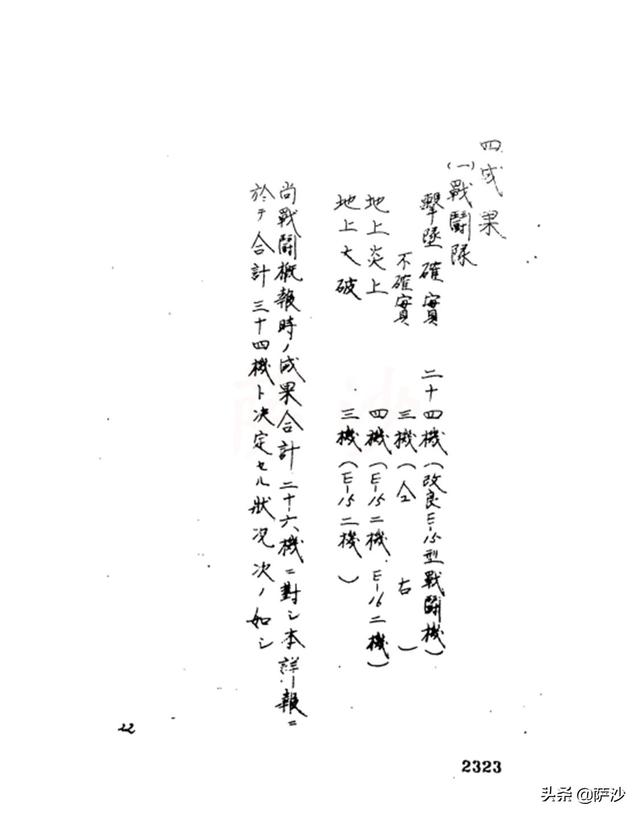 四 成果
(一)戰鬪隊
擊墜確實 二十四機(改良E-15型戰鬪機)
不確實 三機(仝右)
地上炎上 四機(E-15二機 E-16二機)
地上大破 三機(E-15二機)
尚戰鬪概報時ノ成果合計二十六機ニ對シ本詳報ニ
於テ合計三十四機ト決定セル狀況次ノ如シ
22
2323
萨沙
头条 @萨沙